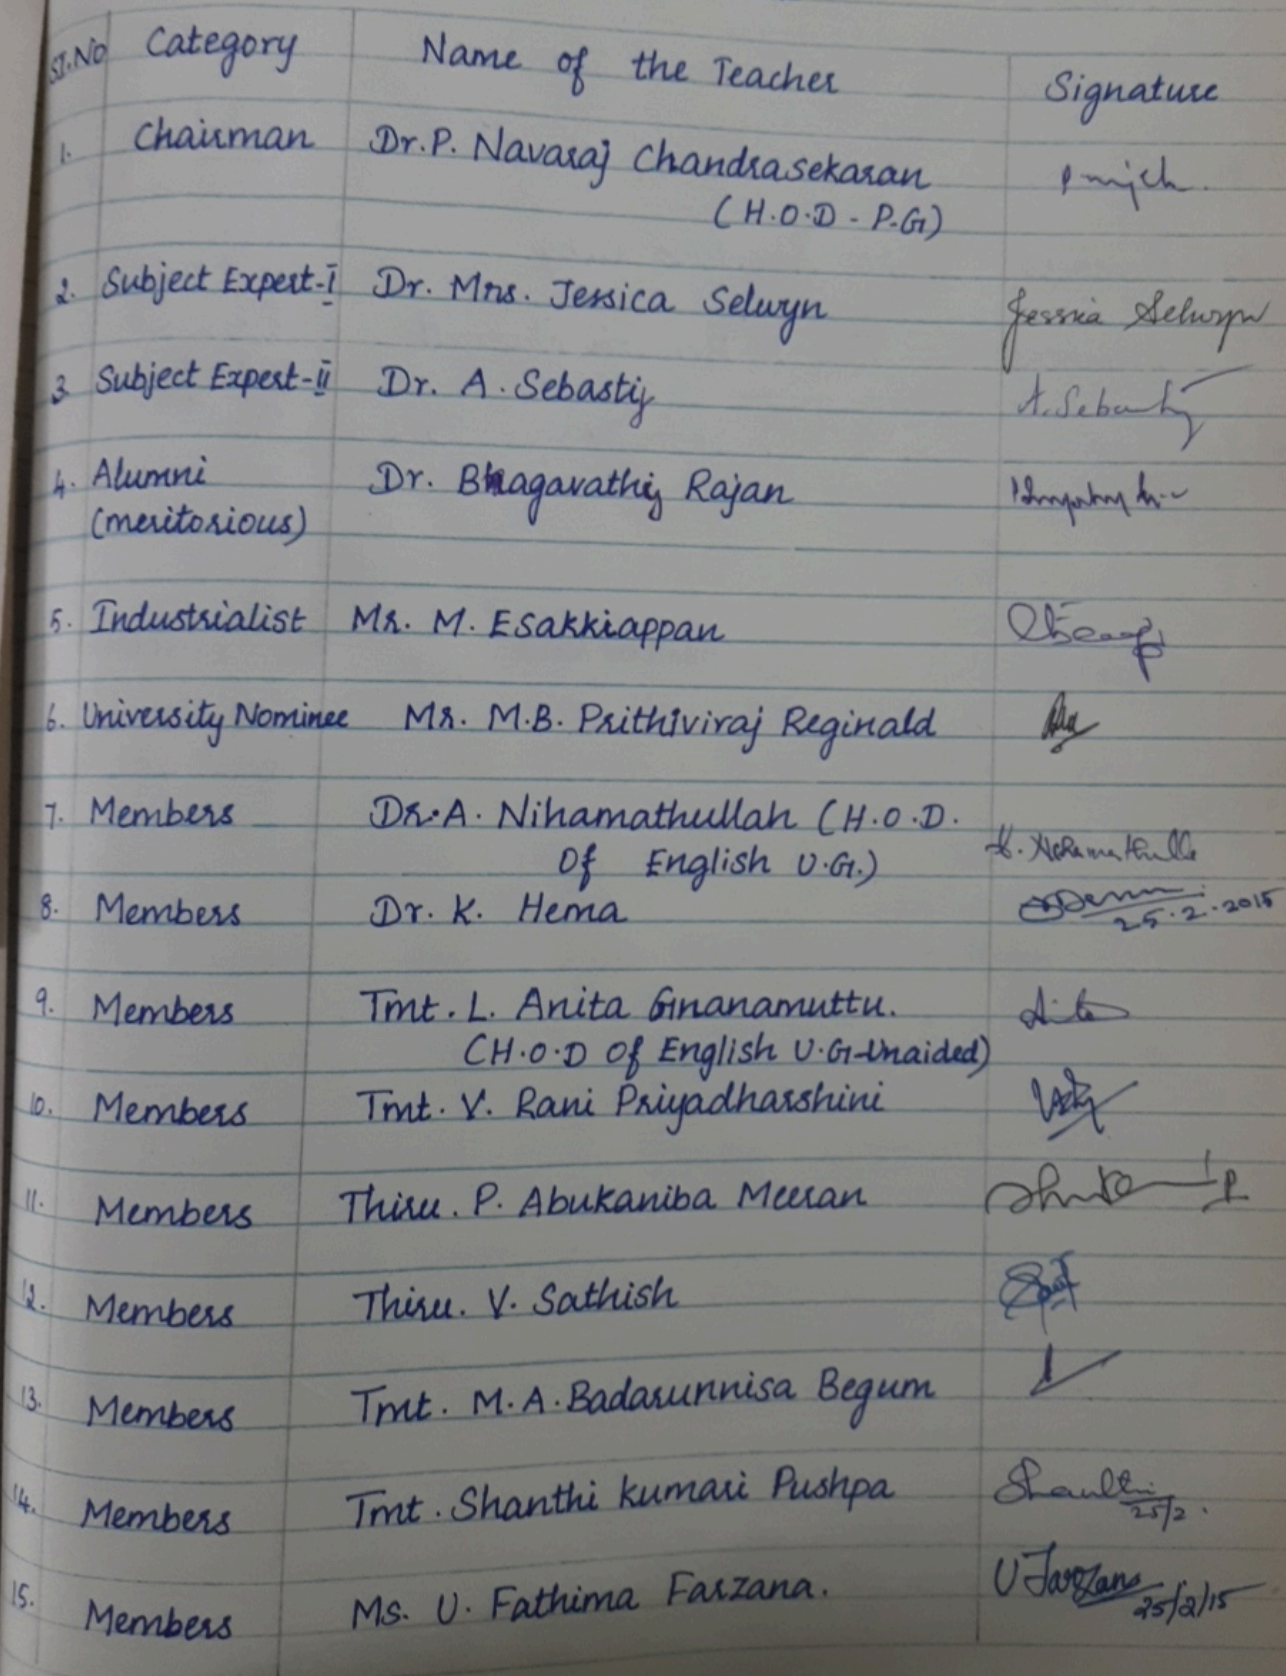 Sl.No Category Name of the Teacher Signature
1. Chairman Dr.P. Navaraj Chandrasekaran
(H.O.D - P.G)
2. Subject Expert-I Dr. Mrs. Jessica Selwyn Jessica Selwyn
3. Subject Expert-II Dr. A. Sebastij A. Sebastij
4. Alumni Dr. Bhagavathij Rajan
(meritorious)
5. Industrialist Mr. M. Esakkiappan
6. University Nominee Mr. M.B. Prithiviraj Reginald
7. Members Dr. A. Nihamathullah (H.O.D.
Of English U.G.)
8. Members Dr. K. Hema 25.2.2015
9. Members Tmt. L. Anita Gnanamuttu.
(H.O.D Of English U.G-Unaided)
10. Members Tmt. V. Rani Priyadharshini
11. Members Thiru. P. Abukaniba Meeran
12. Members Thiru. V. Sathish
13. Members Tmt. M.A. Badarunnisa Begum
14. Members Tmt. Shanthi kumari Pushpa Shanthi
25/2.
15. Members Ms. U. Fathima Farzana. U Farzana
25/2/15